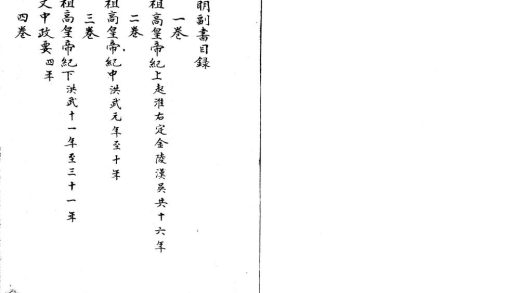 明副書目錄
一卷
祖高皇帝紀上 起淮右定金陵漢吳共十六年
二卷
祖高皇帝紀中 洪武元年至十年
三卷
祖高皇帝紀下 洪武十一年至三十一年
文中政要 四年
四卷